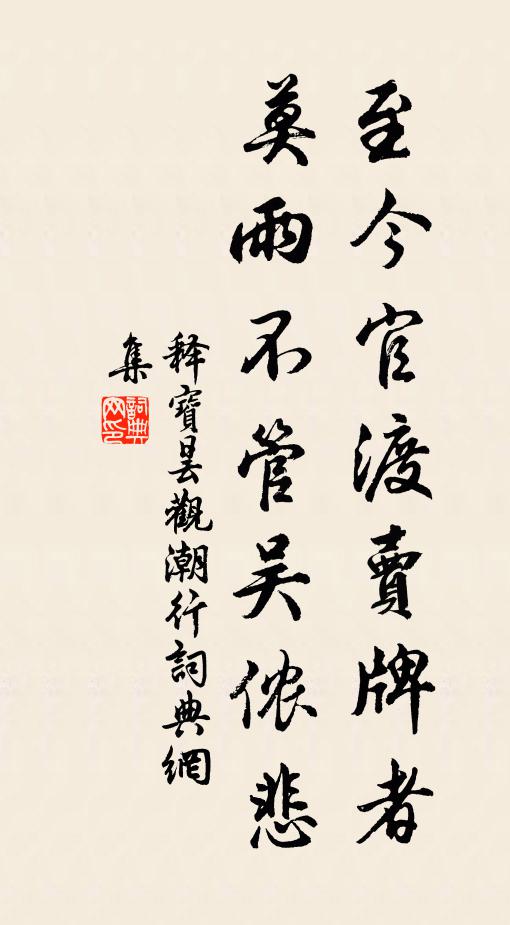 至今官渡賣牌者
莫雨不管吴侬悲
释寶曇觀潮行詞典網
集
詞典网印